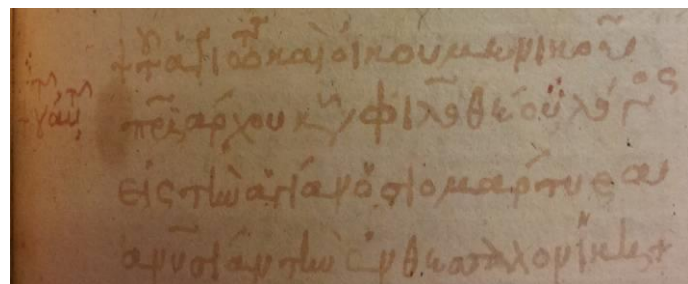 + τοῦ ἁγιωτ καὶ οἰκουμενικοῦ
πριάρχου κυ φιλοθέου λόγος
εἰς τὴν ἁγίαν ὁσιομάρτυρα
ἀνυσίαν τὴν ἐν θεσσαλονίκη +